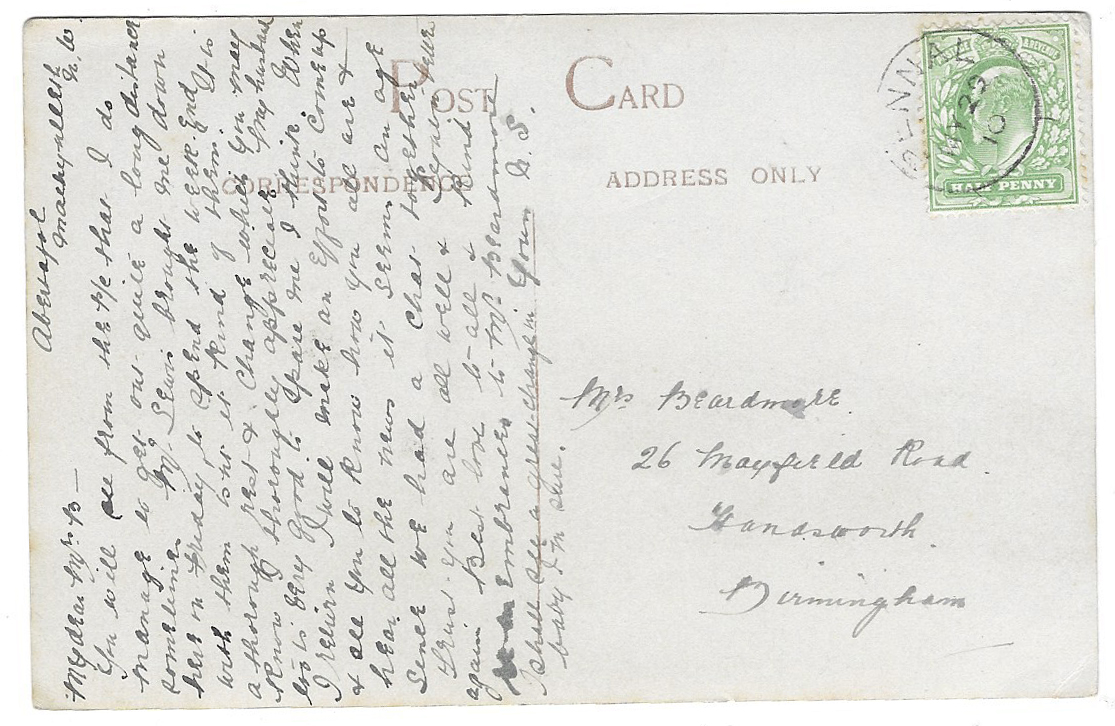 POST CARD
CORRESPONDENCE
ADDRESS ONLY
HALF PENNY
MY 23
10
Abergynol
Machynlleth
N. W.
My dear Mrs B —
You will see from the P/c that I do
manage to get out quite a long distance
sometimes. Mr Lewis brought me down
here on Friday to spend the week-end. It is
with them isnt it kind of them.
a thorough rest & change which you may
know I thoroughly appreciate. My husband
too is very good to spare me I think. When
I return I will make an effort to come up
& see you to know how you all are &
hear all the news it seems an age
since we had a chat together.
trust you are all well & Leonard
again Best love to all & kind
remembrances to Mr Beardmore
Yours A. S.
I shall see a great change in
baby I'm sure.
Mrs Beardmore.
26 Mayfield Road.
Handsworth.
Birmingham